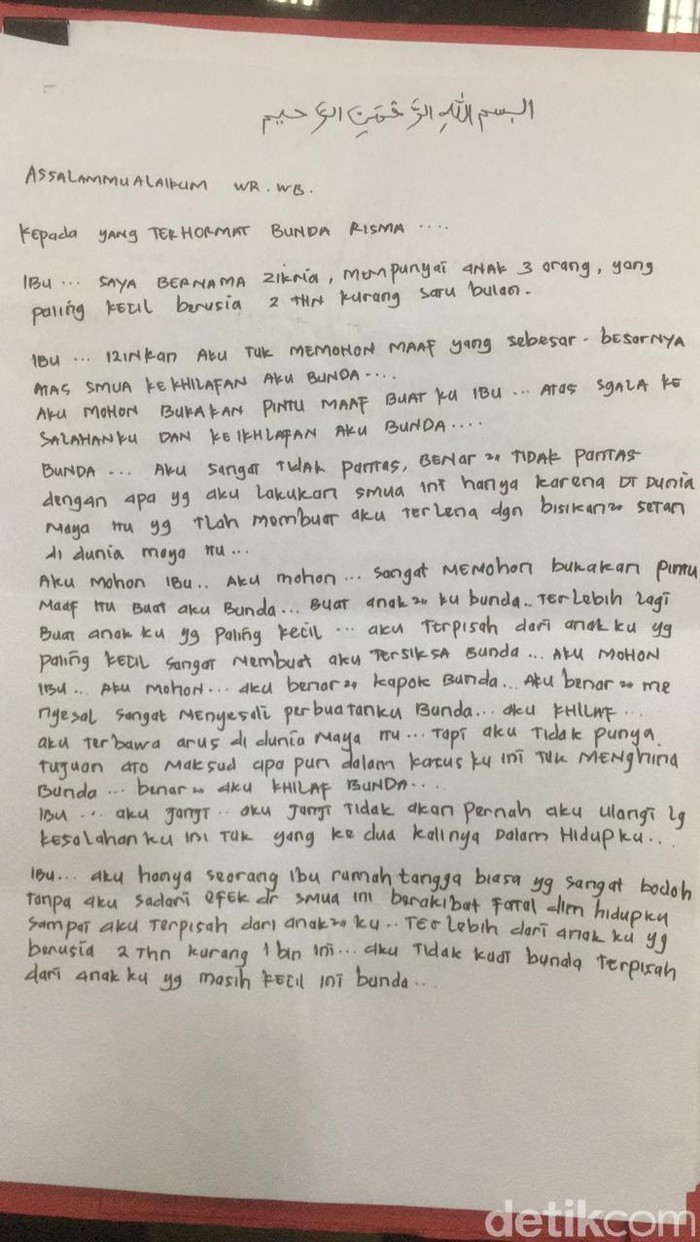 البسم الله الرحمن الرحيم
ASSALAMMUALAIKUM WR. WB.
Kepada YANG TERHORMAT BUNDA RISMA ....
IBU ... SAYA BERNAMA ZIKRIA, MEMPUNYAI ANAK 3 orang, yang
paling KECIL berusia 2 THN kurang saru bulan.
IBU ... IZINKAN AKU TUK MEMOHON MAAF yang sebesar - besarNYA
ATAS SMUA KEKHILAFAN AKU BUNDA....
AKU MOHON BUKAKAN PINTU MAAF BUAT KU IBU ... ATAS SGALA KE
SALAHANKU DAN KEIKHLAFAN AKU BUNDA....
BUNDA ... AKU SANGAT TIDAK PANTAS, BENAR 2x TIDAK PANTAS
dengan apa yg aku lakukan smua ini hanya karena DI DUNIA
Maya itu yg TLah membuat aku terlena dgn bisikan2x SETAN
di dunia maya itu...
AKU Mohon IBU.. AKU mohon... sangat MEMohon bukakan PINTU
Maaf itu Buat aku Bunda... Buat anak2x ku bunda.. TERLEBIH Lagi
Buat anak ku yg Paling kecil ... aku Terpisah dari anak ku yg
paling KECIL sangat membuat aku TERSIKSA Bunda... AKU MOHON
IBU... AKU Mohon... aku benar2x kapok Bunda... AKU benar2x me
ngesal sangat Menyesali perbuatanku Bunda... aku KHILAF...
aku Terbawa arus di dunia Maya itu... Tapi aku Tidak punya
Tujuan ATO Maksud apa pun dalam kasus ku ini TUK MENghina
Bunda ... benar2x aku KHILAF BUNDA....
IBU ... aku janji .. aku janji Tidak akan Pernah aku ulangi lg
kesalahan ku ini TUK yang ke dua kalinya Dalam Hidupku...
IBU... aku hanya seorang Ibu rumah tangga biasa yg sangat bodoh
Tanpa aku sadari efek dr smua ini berakibat Fatal dlm hidupku
sampai aku Terpisah dari anak2x ku.. TERlebih dari anak ku yg
berusia 2 Thn kurang 1 bln ini... aku Tidak kuat bunda Terpisah
dari anak ku yg masih KECIL ini bunda...
detikcom